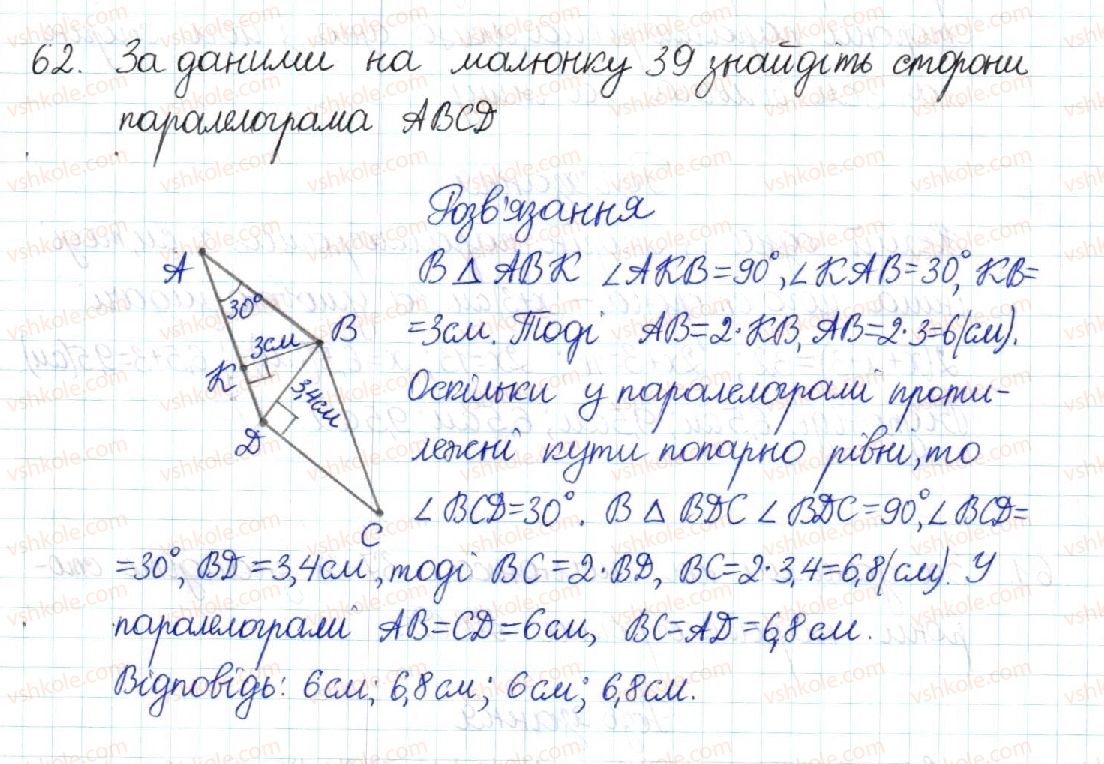 62. За даними на малюнку 39 знайдіть сторони
паралелограма ABCD
Розв'язання
A
30°
B
3см
K
3,4см
D
C
В △ ABK ∠AKB=90°, ∠KAB=30°, KB=
=3см. Тоді AB=2·KB, AB=2·3=6(см).
Оскільки у паралелограмі проти-
лежні кути попарно рівні, то
∠BCD=30°. В △ BDC ∠BDC=90°, ∠BCD=
=30°, BD=3,4см, тоді BC=2·BD, BC=2·3,4=6,8(см). У
паралелограмі AB=CD=6см, BC=AD=6,8см.
Відповідь: 6см; 6,8см; 6см; 6,8см.
vshkole.com